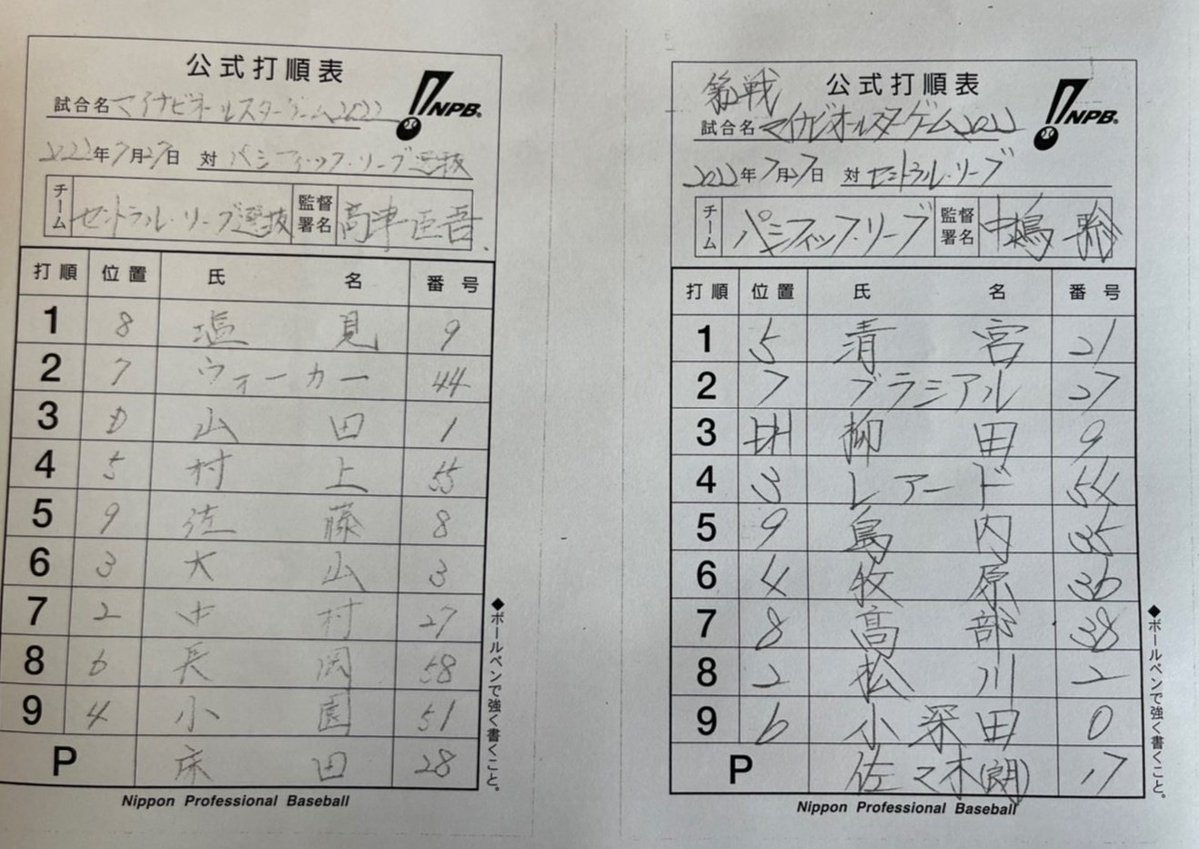 公式打順表
NPB
試合名 マイナビオールスターゲーム2022
2022年7月27日 対 パシフィック・リーグ選抜
チーム セントラル・リーグ選抜 監督署名 高津臣吾
打順 位置 氏名 番号
1 8 塩見 9
2 7 ウォーカー 44
3 D 山田 1
4 5 村上 55
5 9 佐藤 8
6 3 大山 3
7 2 中村 27
8 6 長岡 58
9 4 小園 51
P 床田 28
◆ボールペンで強く書くこと。
Nippon Professional Baseball
第2戦
公式打順表
NPB
試合名 マイナビオールスターゲーム2022
2022年7月27日 対 セントラル・リーグ
チーム パシフィック・リーグ 監督署名 中嶋聡
打順 位置 氏名 番号
1 5 清宮 21
2 7 グラシアル 27
3 DH 柳田 9
4 3 レアード 54
5 9 島内 35
6 4 牧原 36
7 8 髙部 38
8 2 松川 2
9 6 小深田 0
P 佐々木(朗) 17
◆ボールペンで強く書くこと。
Nippon Professional Baseball